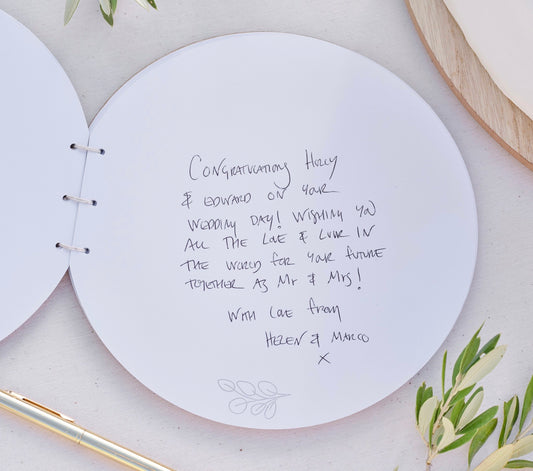 CONGRATULATIONS HOLLY
& EDWARD ON YOUR
WEDDING DAY! WISHING YOU
ALL THE LOVE & LUCK IN
THE WORLD FOR YOUR FUTURE
TOGETHER AS Mr & Mrs!
WITH LOVE from
HELEN & MARCO
X